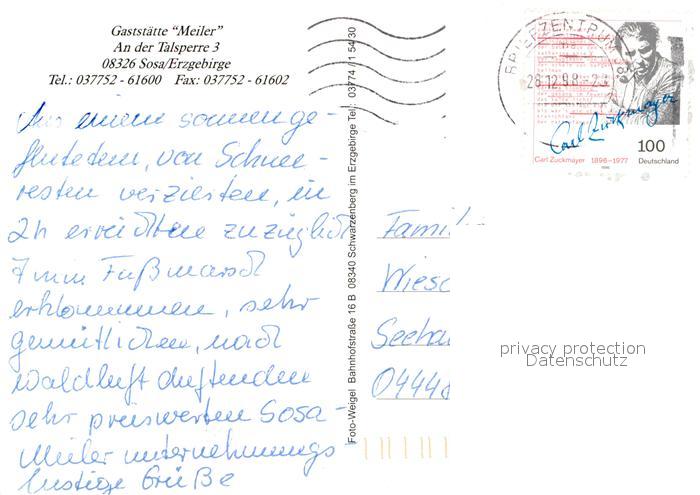 Gaststätte "Meiler"
An der Talsperre 3
08326 Sosa/Erzgebirge
Tel.: 037752 - 61600 Fax: 037752 - 61602
Aus einem sonnenge-
fluteten, von Schnee-
resten verzierten, in
2h erreichten zuzüglich
7 min Fußmarsch
erklommenen, sehr
gemütlichen, nach
Waldluft duftenden
sehr preiswerten Sosa-
Meiler unternehmungs-
lustige Grüße
Foto-Weigel Bahnhofstraße 16 B 08340 Schwarzenberg im Erzgebirge Tel.: 03774 / 1 54 30
BRIEFZENTRUM
28.12.98
Carl Zuckmayer
100
Carl Zuckmayer 1896-1977 Deutschland
Famil
Wiesc
Seehau
0444
privacy protection
Datenschutz